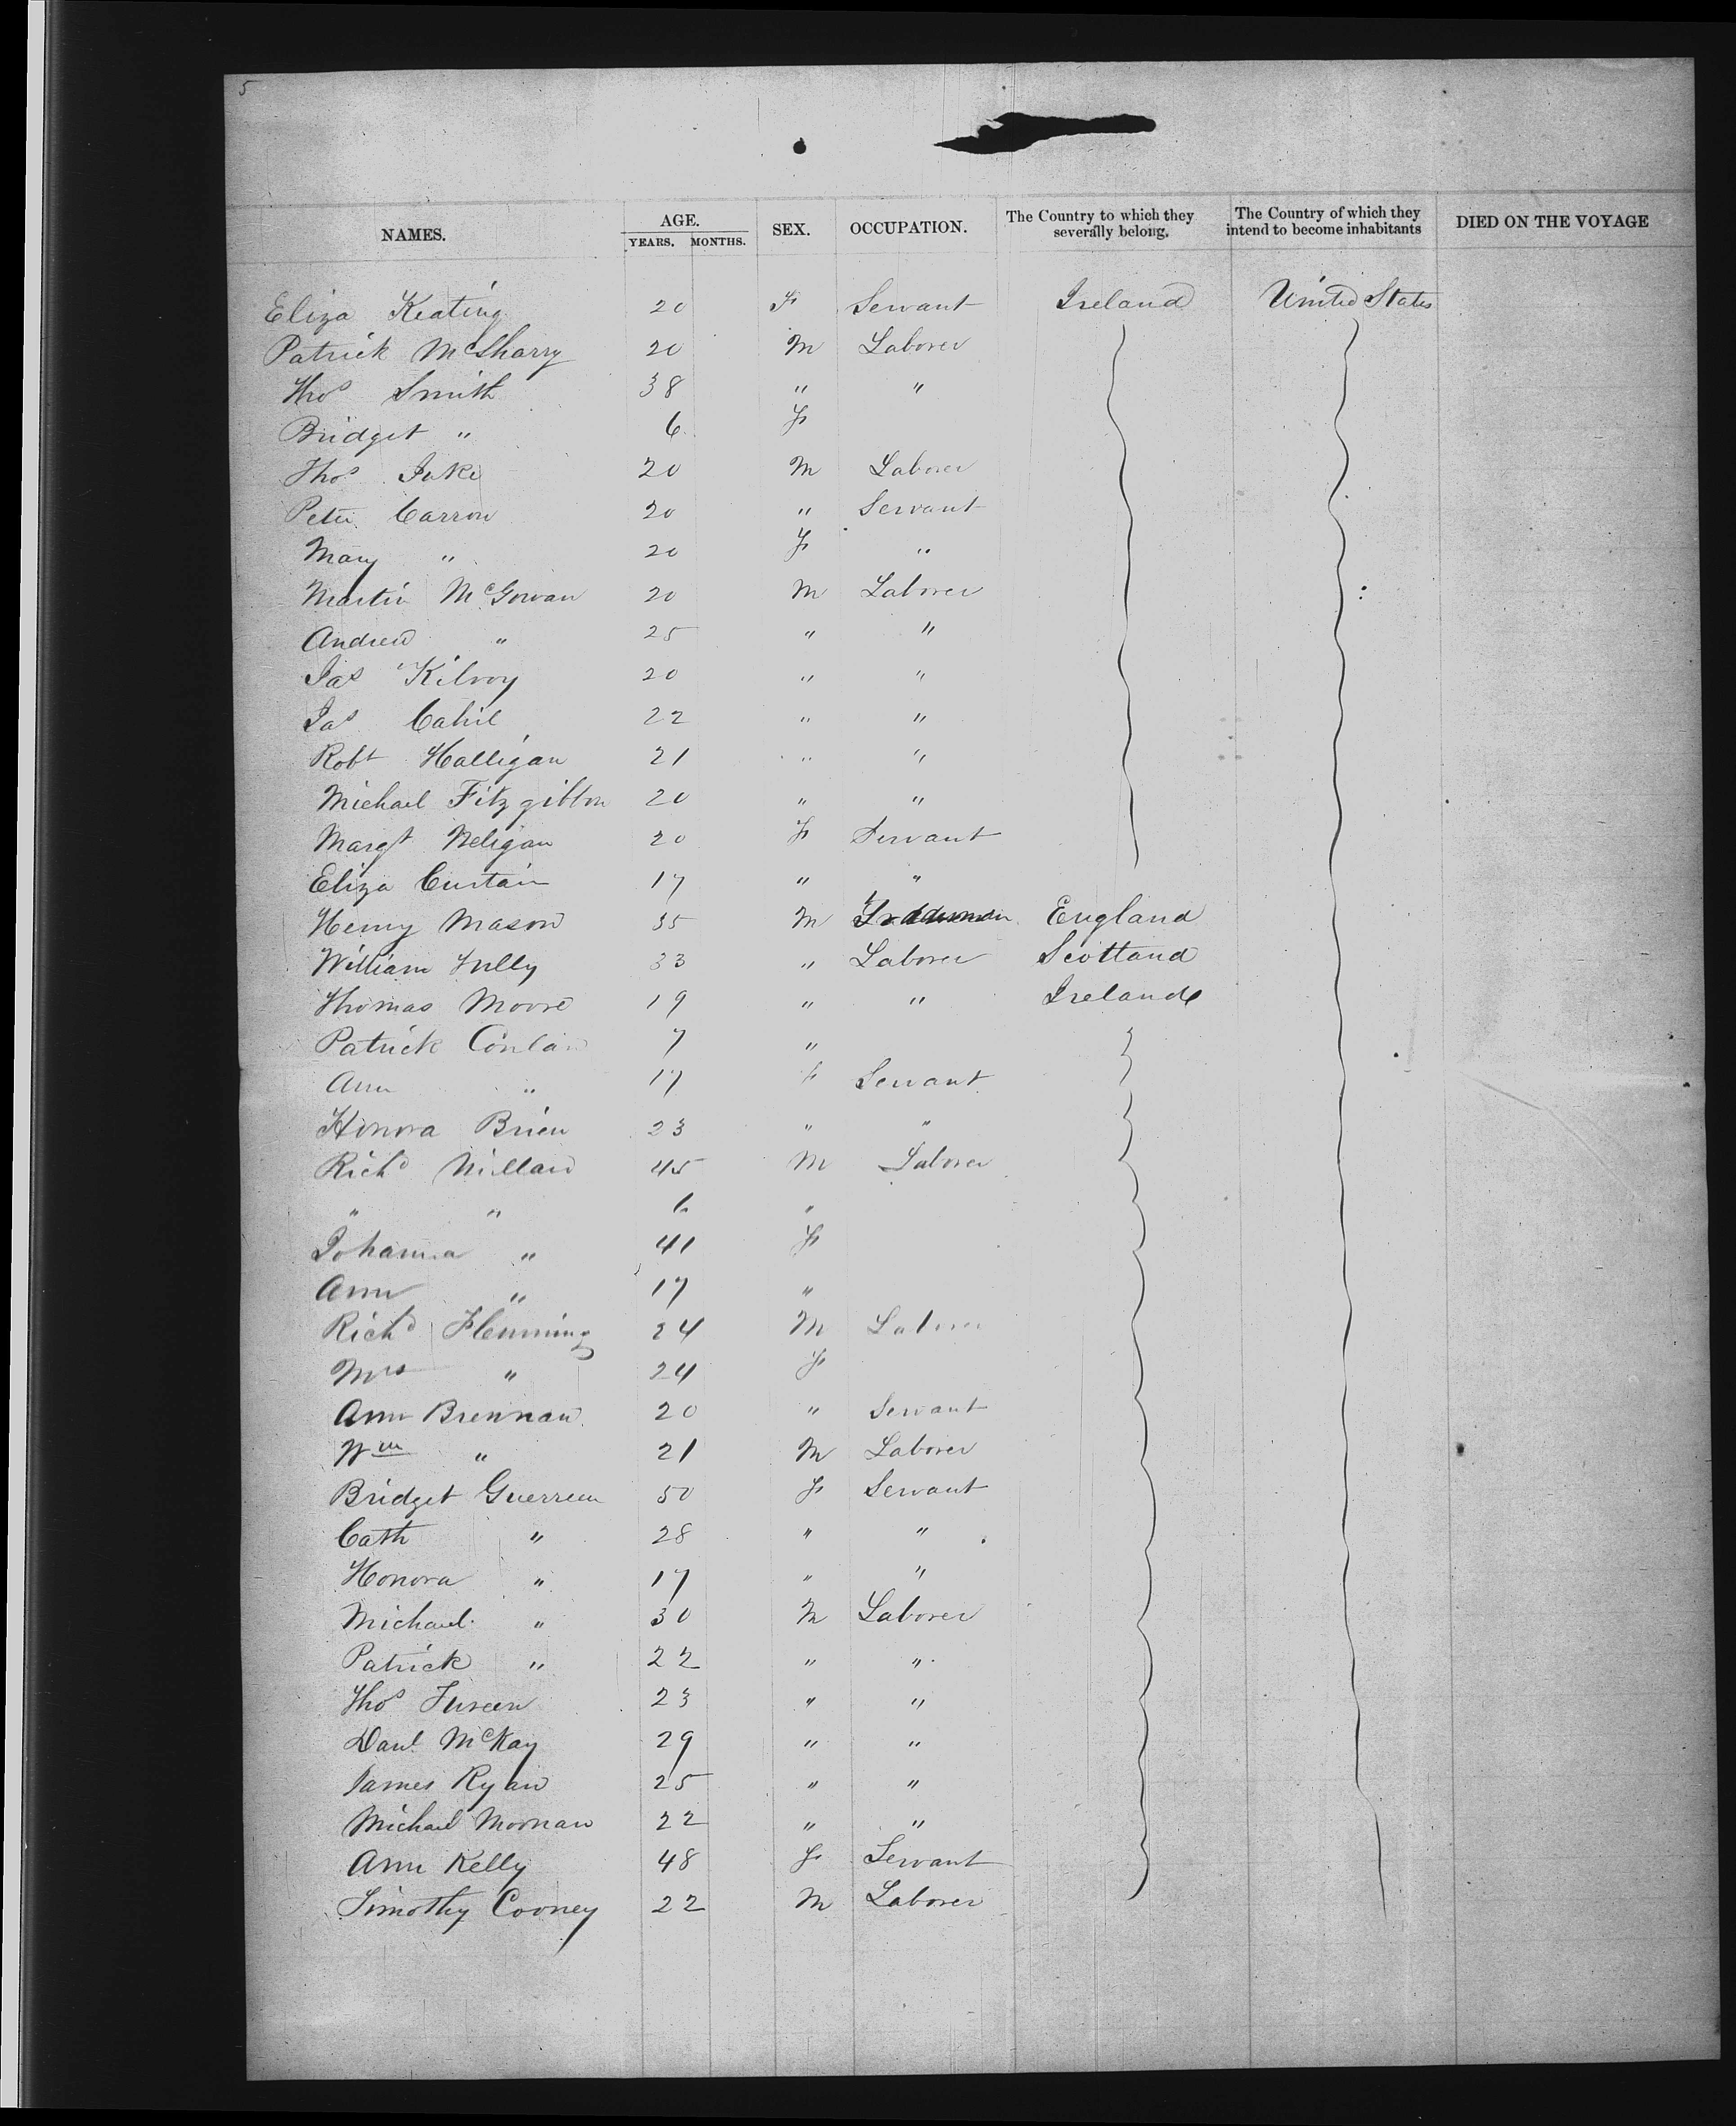 5
NAMES. AGE. YEARS. MONTHS. SEX. OCCUPATION. The Country to which they severally belong. The Country of which they intend to become inhabitants DIED ON THE VOYAGE
Eliza Keating 20 F Servant Ireland United States
Patrick McSharry 20 M Laborer
Thos Smith 38 " "
Bridget " 6 F
Thos 20 M Laborer
Peter Carron 20 " Servant
Mary " 20 F "
Martin McGowan 20 M Laborer
Andrew " 25 " "
Jas Kilroy 20 " "
Jas Cahil 22 " "
Robt Halligan 21 " "
Michael Fitzgibbon 20 " "
Margt Neligan 20 F Servant
Eliza Curtain 17 " "
Henry Mason 35 M England
William Tully 33 " Laborer Scotland
Thomas Moore 19 " " Ireland
Patrick Conlan 7 "
Ann " 17 F Servant
Honora Brien 23 " "
Richd Millard 45 M Laborer
" " 6 "
Johanna " 41 F
Ann " 17 "
Richd Flemming 24 M Laborer
Mrs " 24 F
Ann Brennan 20 " Servant
Wm " 21 M Laborer
Bridget 50 F Servant
Cath " 28 " "
Honora " 17 " "
Michael " 30 M Laborer
Patrick " 22 " "
Thos 23 " "
Danl McKay 29 " "
James Ryan 25 " "
Michael Moonan 22 " "
Ann Kelly 48 F Servant
Timothy Cooney 22 M Laborer